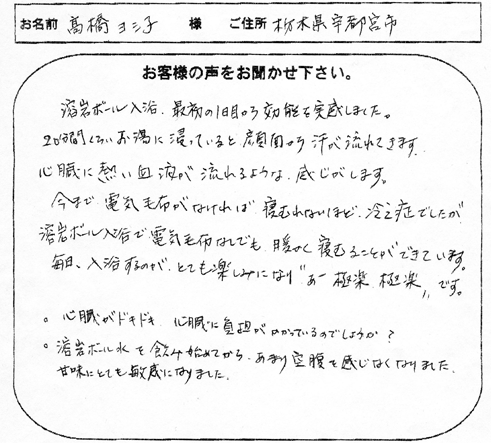 お名前 髙橋 ヨシ子 様 ご住所 栃木県宇都宮市
お客様の声をお聞かせ下さい。
溶岩ボール入浴、最初の1日目から効能を実感しました。
20分間くらいお湯に浸っていると顔面から汗が流れてきます。
心臓に熱い血液が流れるような、感じがします。
今まで電気毛布がなければ寝むれないほど、冷え症でしたが
溶岩ボール入浴で電気毛布なしでも暖かく寝むることができています。
毎日、入浴するのが、とても楽しみになり"あー極楽、極楽"です。
。心臓がドキドキ、心臓に負担がかかっているのでしょうか?
。溶岩ボール水を飲み始めてから、あまり空腹を感じなくなりました。
甘味にとても敏感になりました。